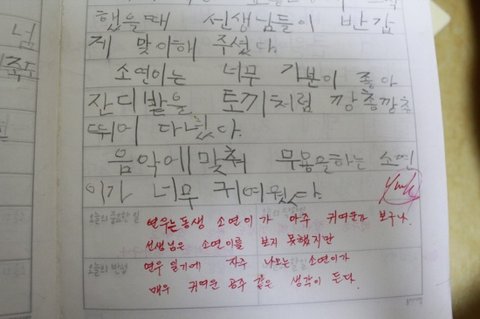 했을때 선생님들이 반갑
게 맞아해 주셨다.
소연이는 너무 기분이 좋아
잔디밭을 토끼처럼 깡충깡충
뛰어 다녔다.
음악에 맞춰 무용을하는 소연
이가 너무 귀여웠다.
연우는동생 소연이가 아주 귀여운가 보구나.
선생님은 소연이를 보지 못했지만
연우 일기에 자주 나오는 소연이가
매우 귀여운 공주 같은 생각이 든다.
오늘의 중요한 일
오늘의 반성